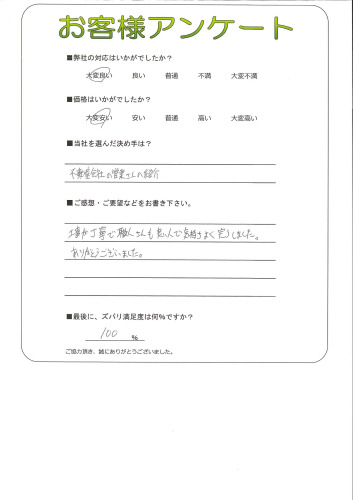 お客様アンケート
■弊社の対応はいかがでしたか?
大変良い 良い 普通 不満 大変不満
■価格はいかがでしたか?
大変安い 安い 普通 高い 大変高い
■当社を選んだ決め手は?
不動産会社の営業さんの紹介
■ご感想・ご要望などをお書き下さい。
工事が丁寧で職人さんも良い人で気持ちよく完了しました。
ありがとうございました。
■最後に、ズバリ満足度は何%ですか?
100 %
ご協力頂き、誠にありがとうございました。